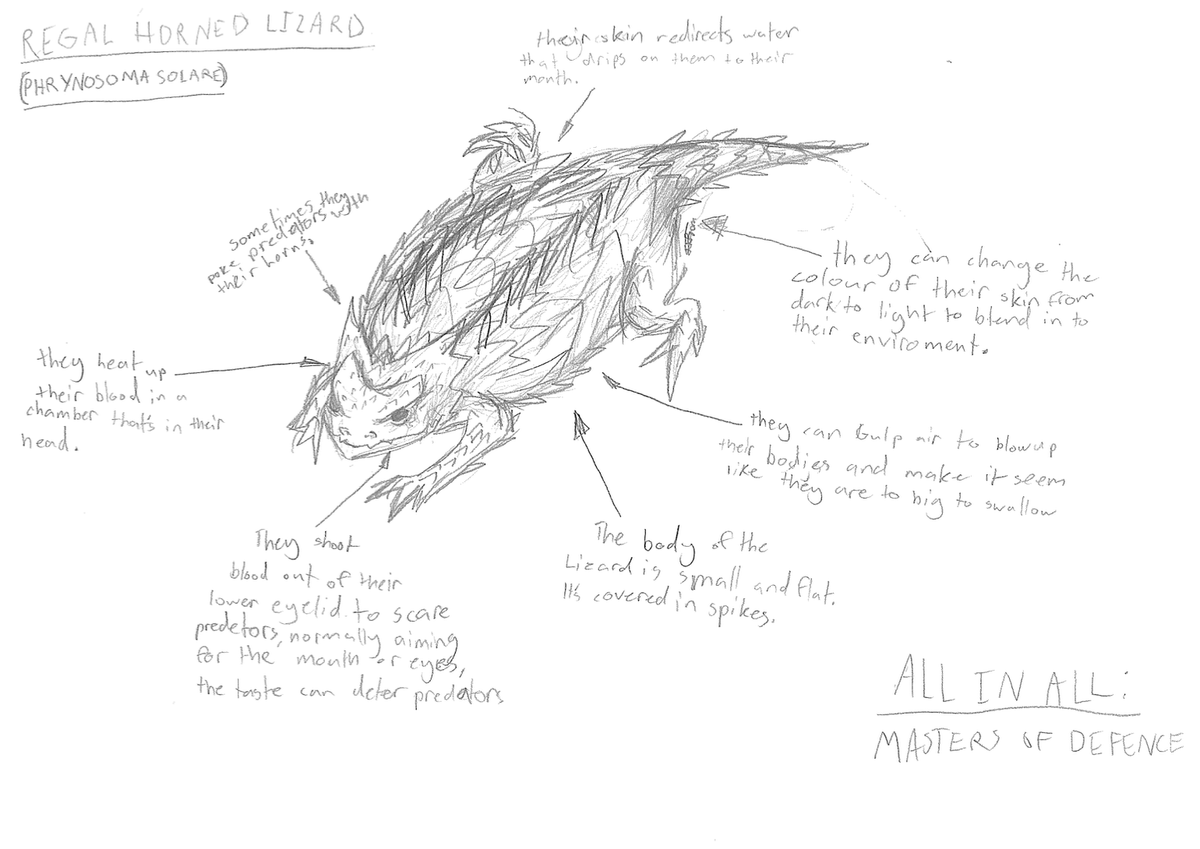 REGAL HORNED LIZARD
(PHRYNOSOMA SOLARE)
their skin redirects water
that drips on them to their
mouth.
sometimes they
poke predators with
their horns.
they can change the
colour of their skin from
dark to light to blend in to
their enviroment.
they heat up
their blood in a
chamber that's in their
head.
they can Gulp air to blow up
their bodies and make it seem
like they are to big to swallow
They shoot
blood out of their
lower eyelid to scare
predetors, normally aiming
for the mouth or eyes,
the taste can deter predators
The body of the
Lizard is small and flat.
It's covered in spikes.
ALL IN ALL:
MASTERS OF DEFENCE